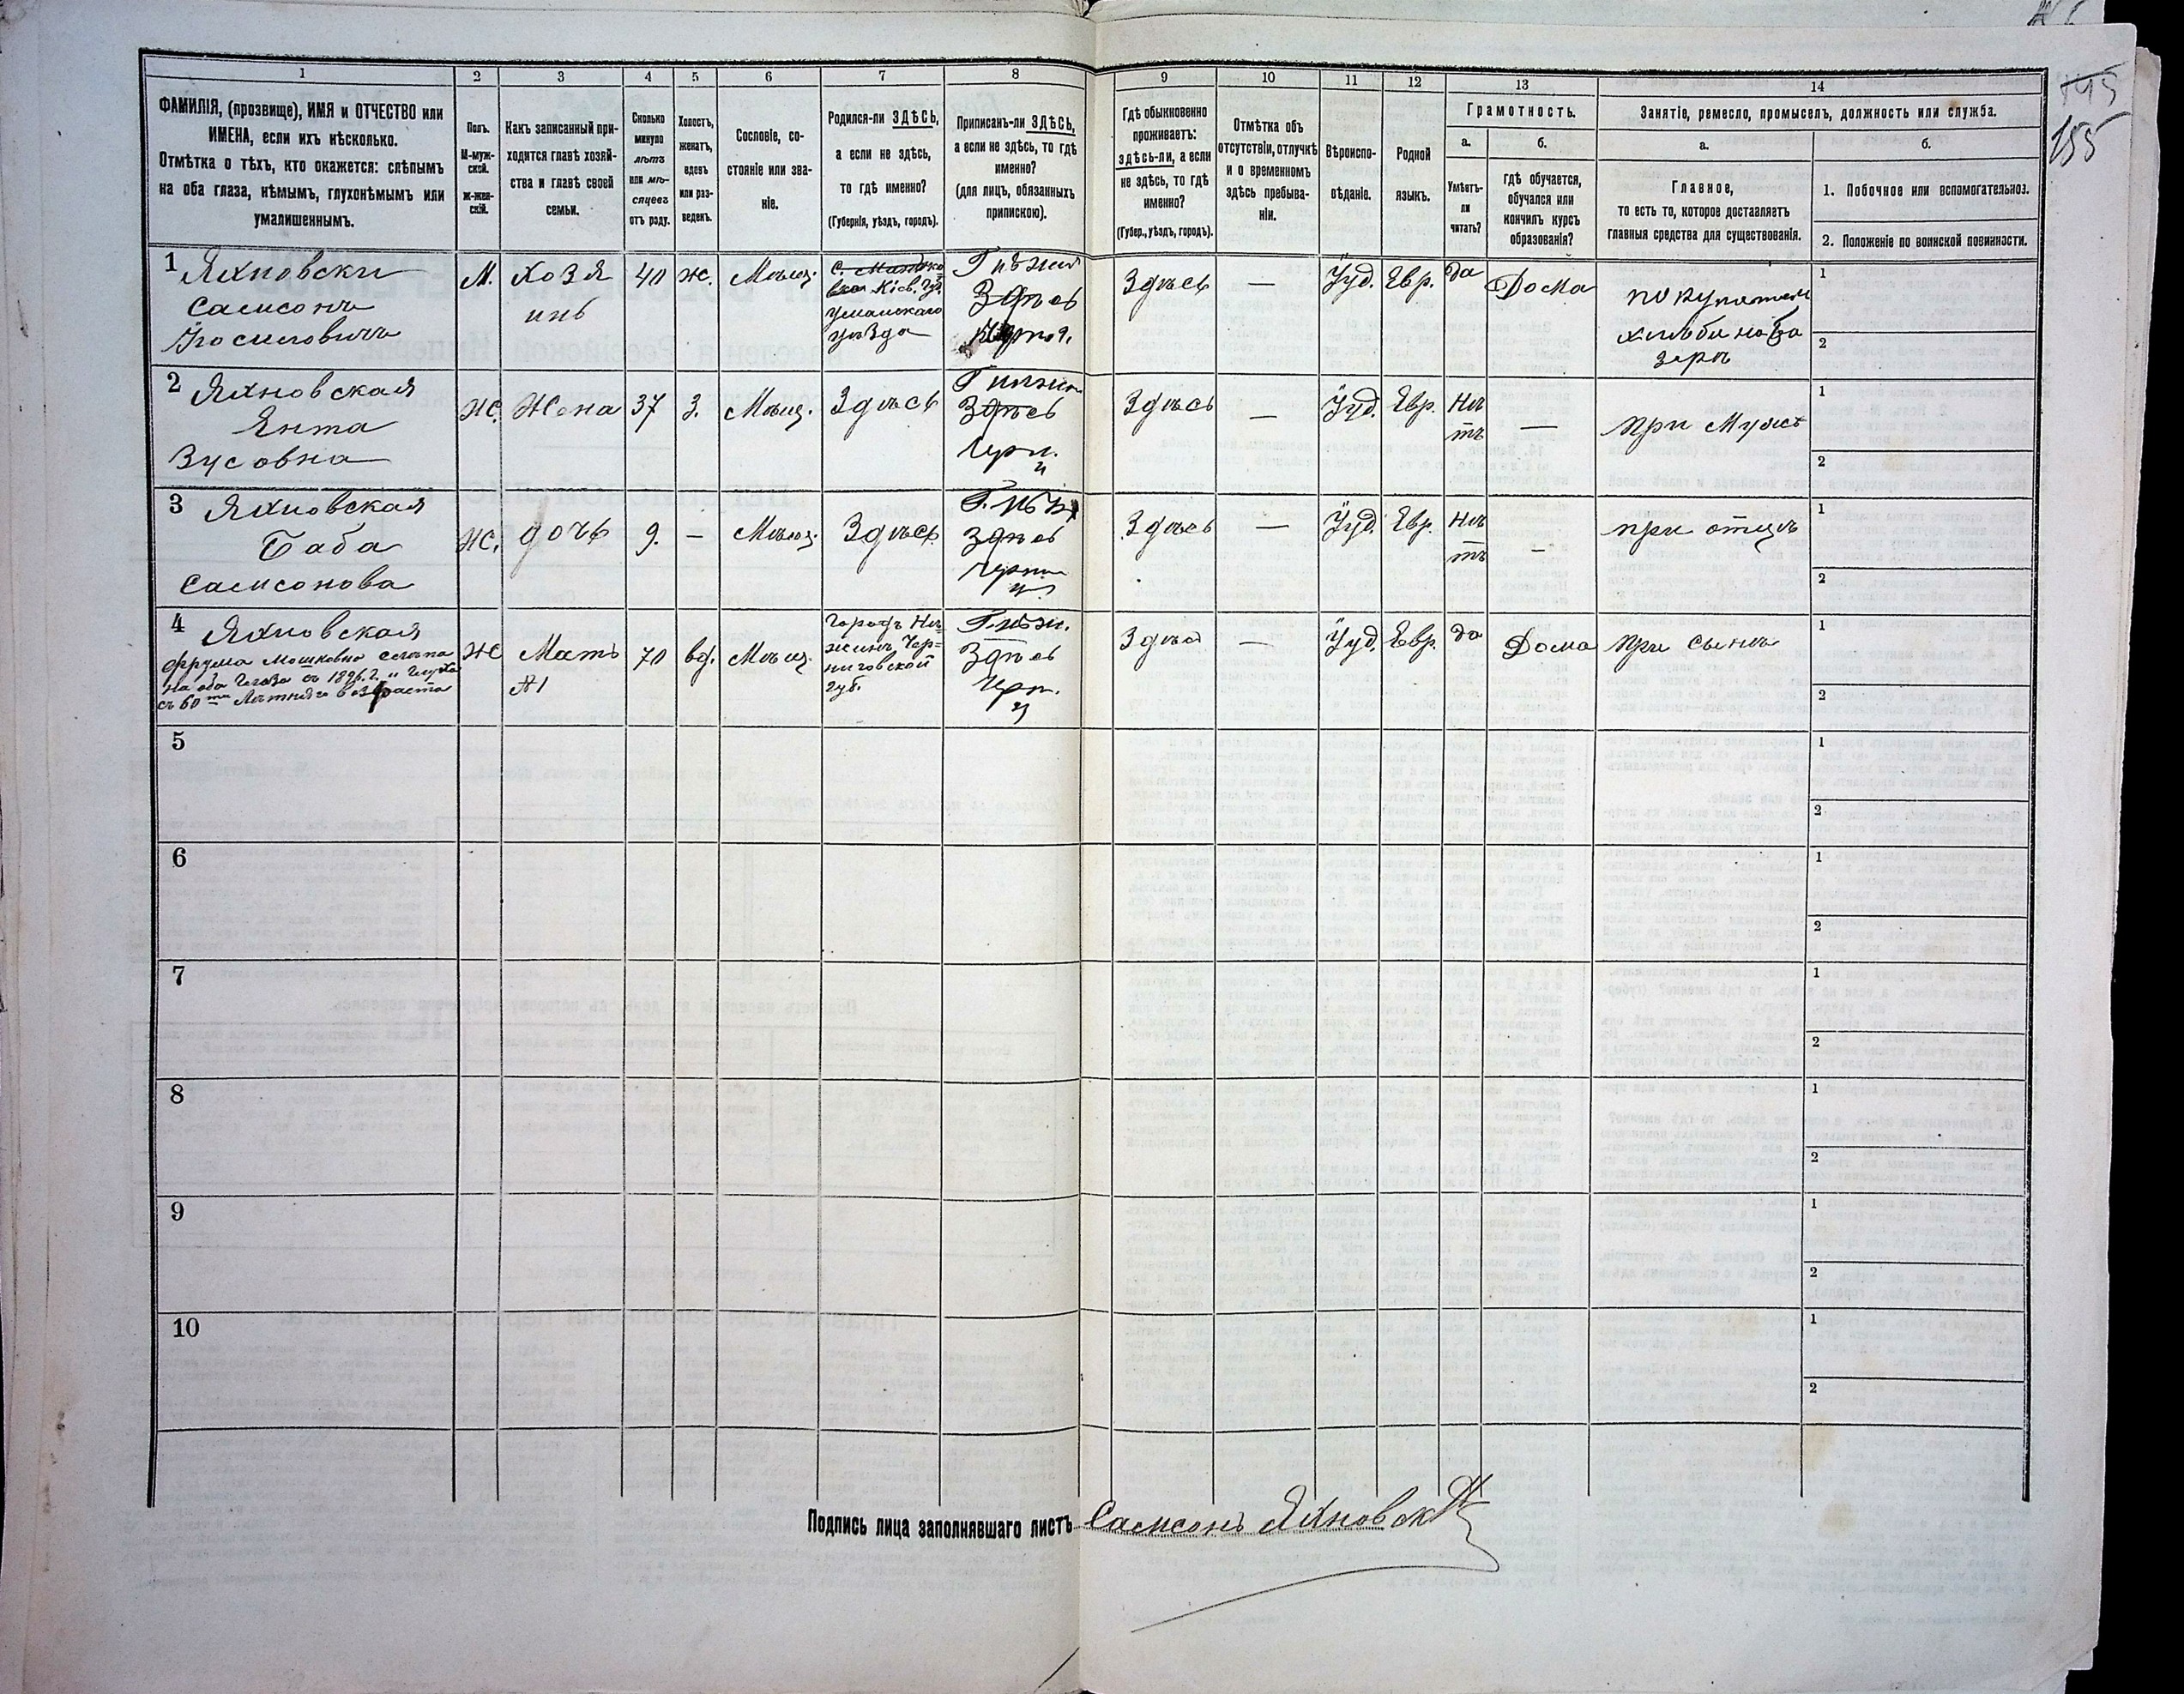 145
155
1 2 3 4 5 6 7 8 9 10 11 12 13 14
ФАМИЛІЯ, (прозвище), ИМЯ и ОТЧЕСТВО или
ИМЕНА, если ихъ нѣсколько.
Отмѣтка о тѣхъ, кто окажется: слѣпымъ
на оба глаза, нѣмымъ, глухонѣмымъ или
умалишеннымъ.
Полъ.
М-муж-
ской.
Ж-жен-
скій.
Какъ записанный при-
ходится главѣ хозяй-
ства и главѣ своей
семьи.
Сколько
минуло
лѣтъ
или мѣ-
сяцевъ
отъ роду.
Холостъ,
женатъ,
вдовъ
или раз-
веденъ.
Сословіе, со-
стояніе или зва-
ніе.
Родился-ли ЗДѢСЬ,
а если не здѣсь,
то гдѣ именно?
(Губернія, уѣздъ, городъ).
Приписанъ-ли ЗДѢСЬ,
а если не здѣсь, то гдѣ
именно?
(для лицъ, обязанныхъ
припискою).
Гдѣ обыкновенно
проживаетъ:
здѣсь-ли, а если
не здѣсь, то гдѣ
именно?
(Губер., уѣздъ, городъ).
Отмѣтка объ
отсутствіи, отлучкѣ
и о временномъ
здѣсь пребыва-
ніи.
Вѣроиспо-
вѣданіе.
Родной
языкъ.
Грамотность.
а.
Умѣетъ-
ли
читать?
б.
гдѣ обучается,
обучался или
кончилъ курсъ
образованія?
Занятіе, ремесло, промыселъ, должность или служба.
а.
Главное,
то есть то, которое доставляетъ
главныя средства для существованія.
б.
1. Побочное или вспомогательное.
2. Положеніе по воинской повинности.
1 Яхновски
Самсонъ
Іосиловичъ
М.
Хозя
инъ
40
ж.
Мѣщ.
Кіев. Губ.
Уманскаго
уѣзда
Здѣсь
Здѣсь
—
Іуд.
Евр.
да
Дома
1
2
2 Яхновская
Ента
Зусовна
Ж.
Жена
37
З.
Мѣщ.
Здѣсь
Здѣсь
Здѣсь
—
Іуд.
Евр.
Нѣ
тъ
—
при мужѣ
1
2
3 Яхновская
Баба
Самсонова
Ж.
дочь
9.
–
Мѣщ.
Здѣсь
Здѣсь
Здѣсь
—
Іуд.
Евр.
Нѣ
тъ
–
при отцѣ
1
2
4 Яхновская
Фрума Мошковна слѣпа
на оба глаза съ 1896 г. и глуха
съ 60ти лѣтняго возраста
Ж
Мать
№1
70
вд.
Мѣщ.
Городъ Нѣ-
жинъ, Чер-
ниговской
губ.
Здѣсь
Здѣсь
—
Іуд.
Евр.
да
Дома
При сынѣ
1
2
5
1
2
6
1
2
7
1
2
8
1
2
9
1
2
10
1
2
Подпись лица заполнявшаго листъ Самсонъ Яхновскій